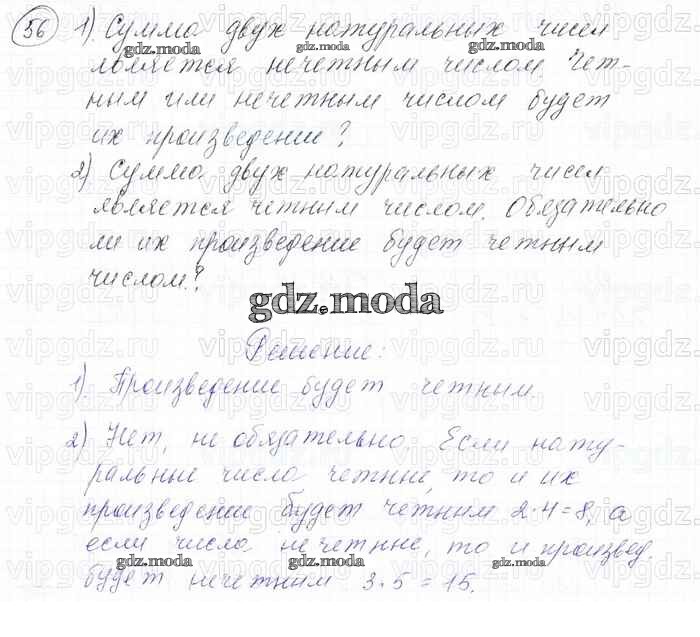 56 1). Сумма двух натуральных чисел
является нечетным числом. Чет-
ным или нечетным числом будет
их произведение?
2) Сумма двух натуральных чисел
является четным числом. Обязательно
ли их произведение будет четным
числом?
gdz.moda
Решение:
1). Произведение будет четным.
2) Нет, не обязательно. Если нату-
ральные числа четные, то и их
произведение будет четным 2·4=8, а
если числа нечетные, то и произвед.
будет нечетным 3·5=15.